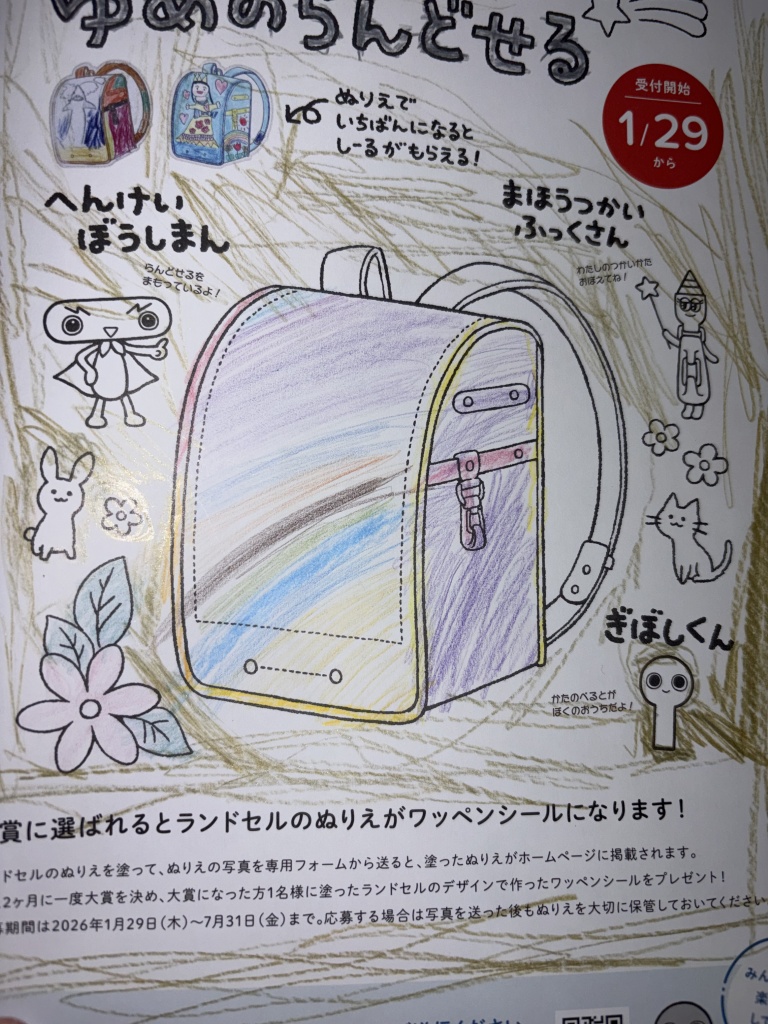 ゆめのらんどせる
ぬりえで
いちばんになると
しーるがもらえる!
受付開始
1/29
から
へんけい
ぼうしまん
らんどせるを
まもっているよ!
まほうつかい
ふっくさん
わたしのつかいかた
おぼえてね!
ぎぼしくん
かたのべるとが
ぼくのおうちだよ!
賞に選ばれるとランドセルのぬりえがワッペンシールになります!
ドセルのぬりえを塗って、ぬりえの写真を専用フォームから送ると、塗ったぬりえがホームページに掲載されます。
2ヶ月に一度大賞を決め、大賞になった方1名様に塗ったランドセルのデザインで作ったワッペンシールをプレゼント!
期間は2026年1月29日(木)〜7月31日(金)まで。応募する場合は写真を送った後もぬりえを大切に保管しておいてください
みん
楽
して